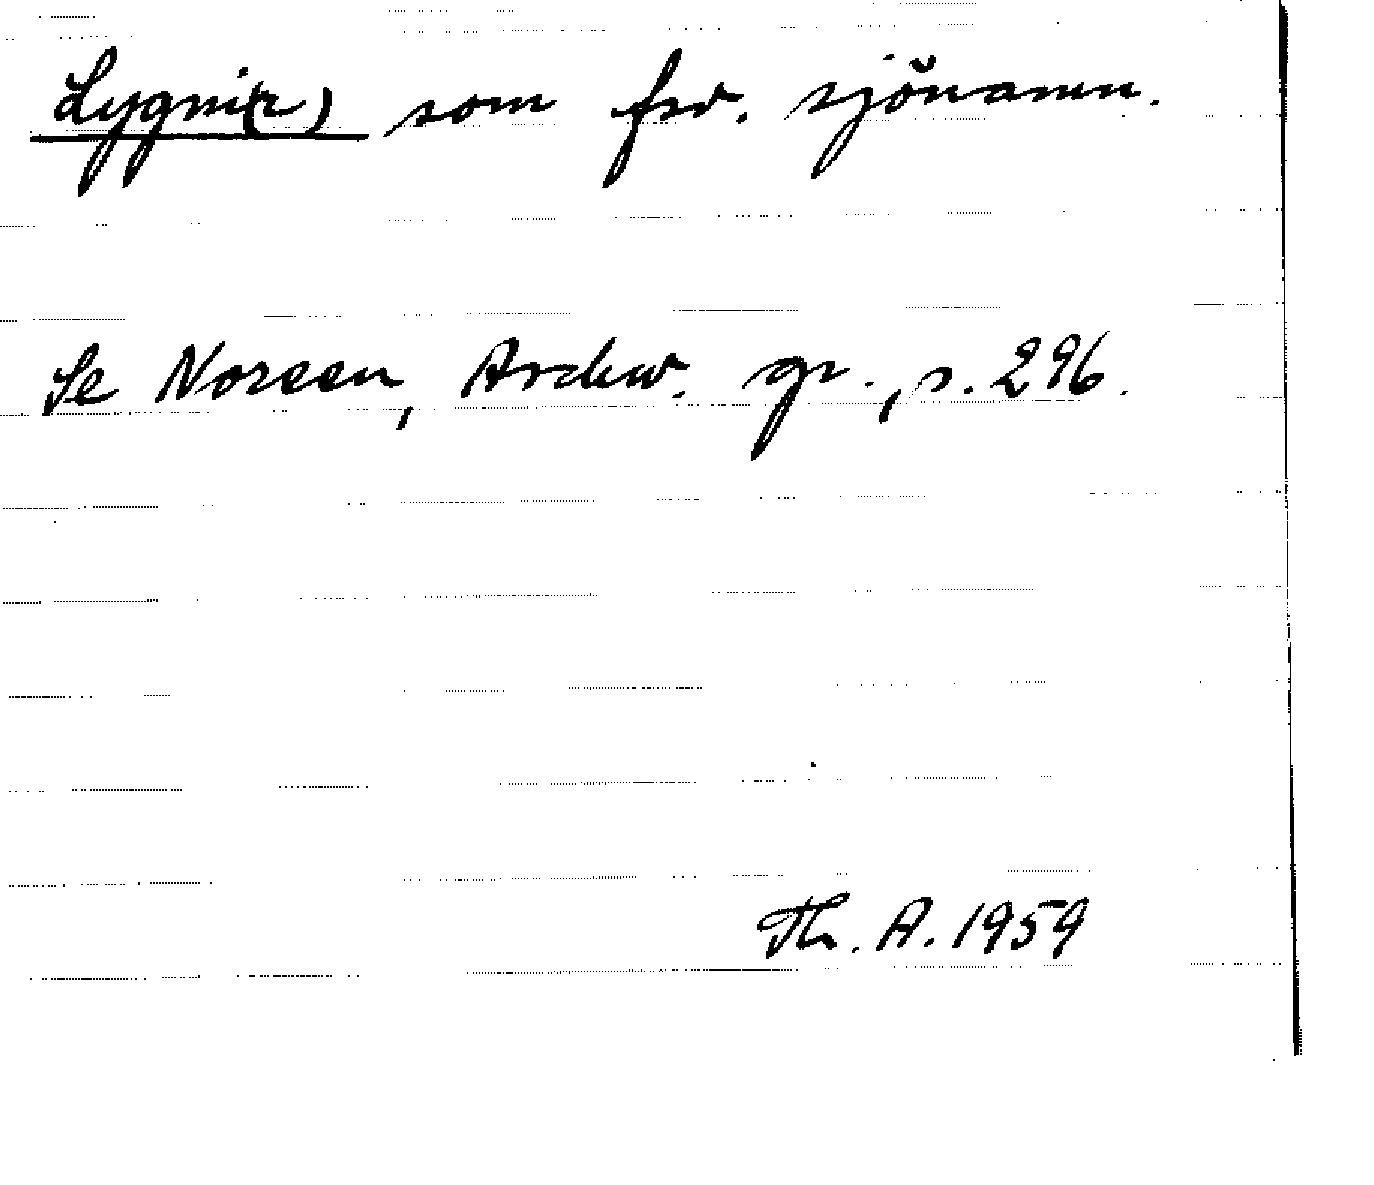 Lygni(r) som fsv. sjönamn.
Se Noreen, Aschw. gr., s. 296.
Th. A. 1959